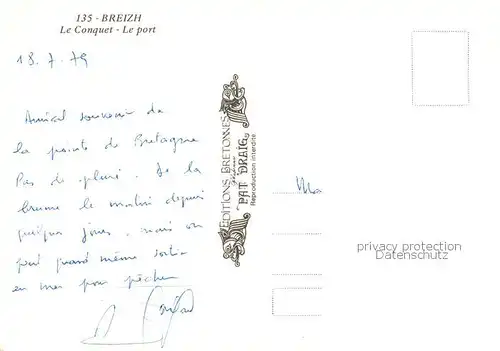 135 - BREIZH
Le Conquet - Le port
18.7.79
Amical souvenir de
la pointe de Bretagne
Pas de pluie. De la
brume le matin depuis
quelques jours, mais on
peut quand même sortir
en mer pour pêcher
EDITIONS BRETONNES
PAT DRAIG
Reproduction interdite
privacy protection
Datenschutz